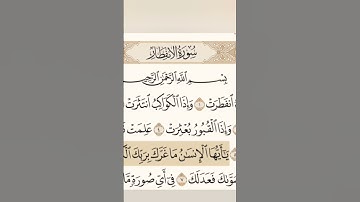 سُورَةُ الِانفِطَارِ
بِسْمِ اللَّهِ الرَّحْمَٰنِ الرَّحِيمِ
انفَطَرَتْ ١ وَإِذَا الْكَوَاكِبُ انتَثَرَتْ
وَإِذَا الْقُبُورُ بُعْثِرَتْ ٤ عَلِمَتْ
يَا أَيُّهَا الْإِنسَانُ مَا غَرَّكَ بِرَبِّكَ
فَعَدَلَكَ ٧ فِي أَيِّ صُورَةٍ مَّا